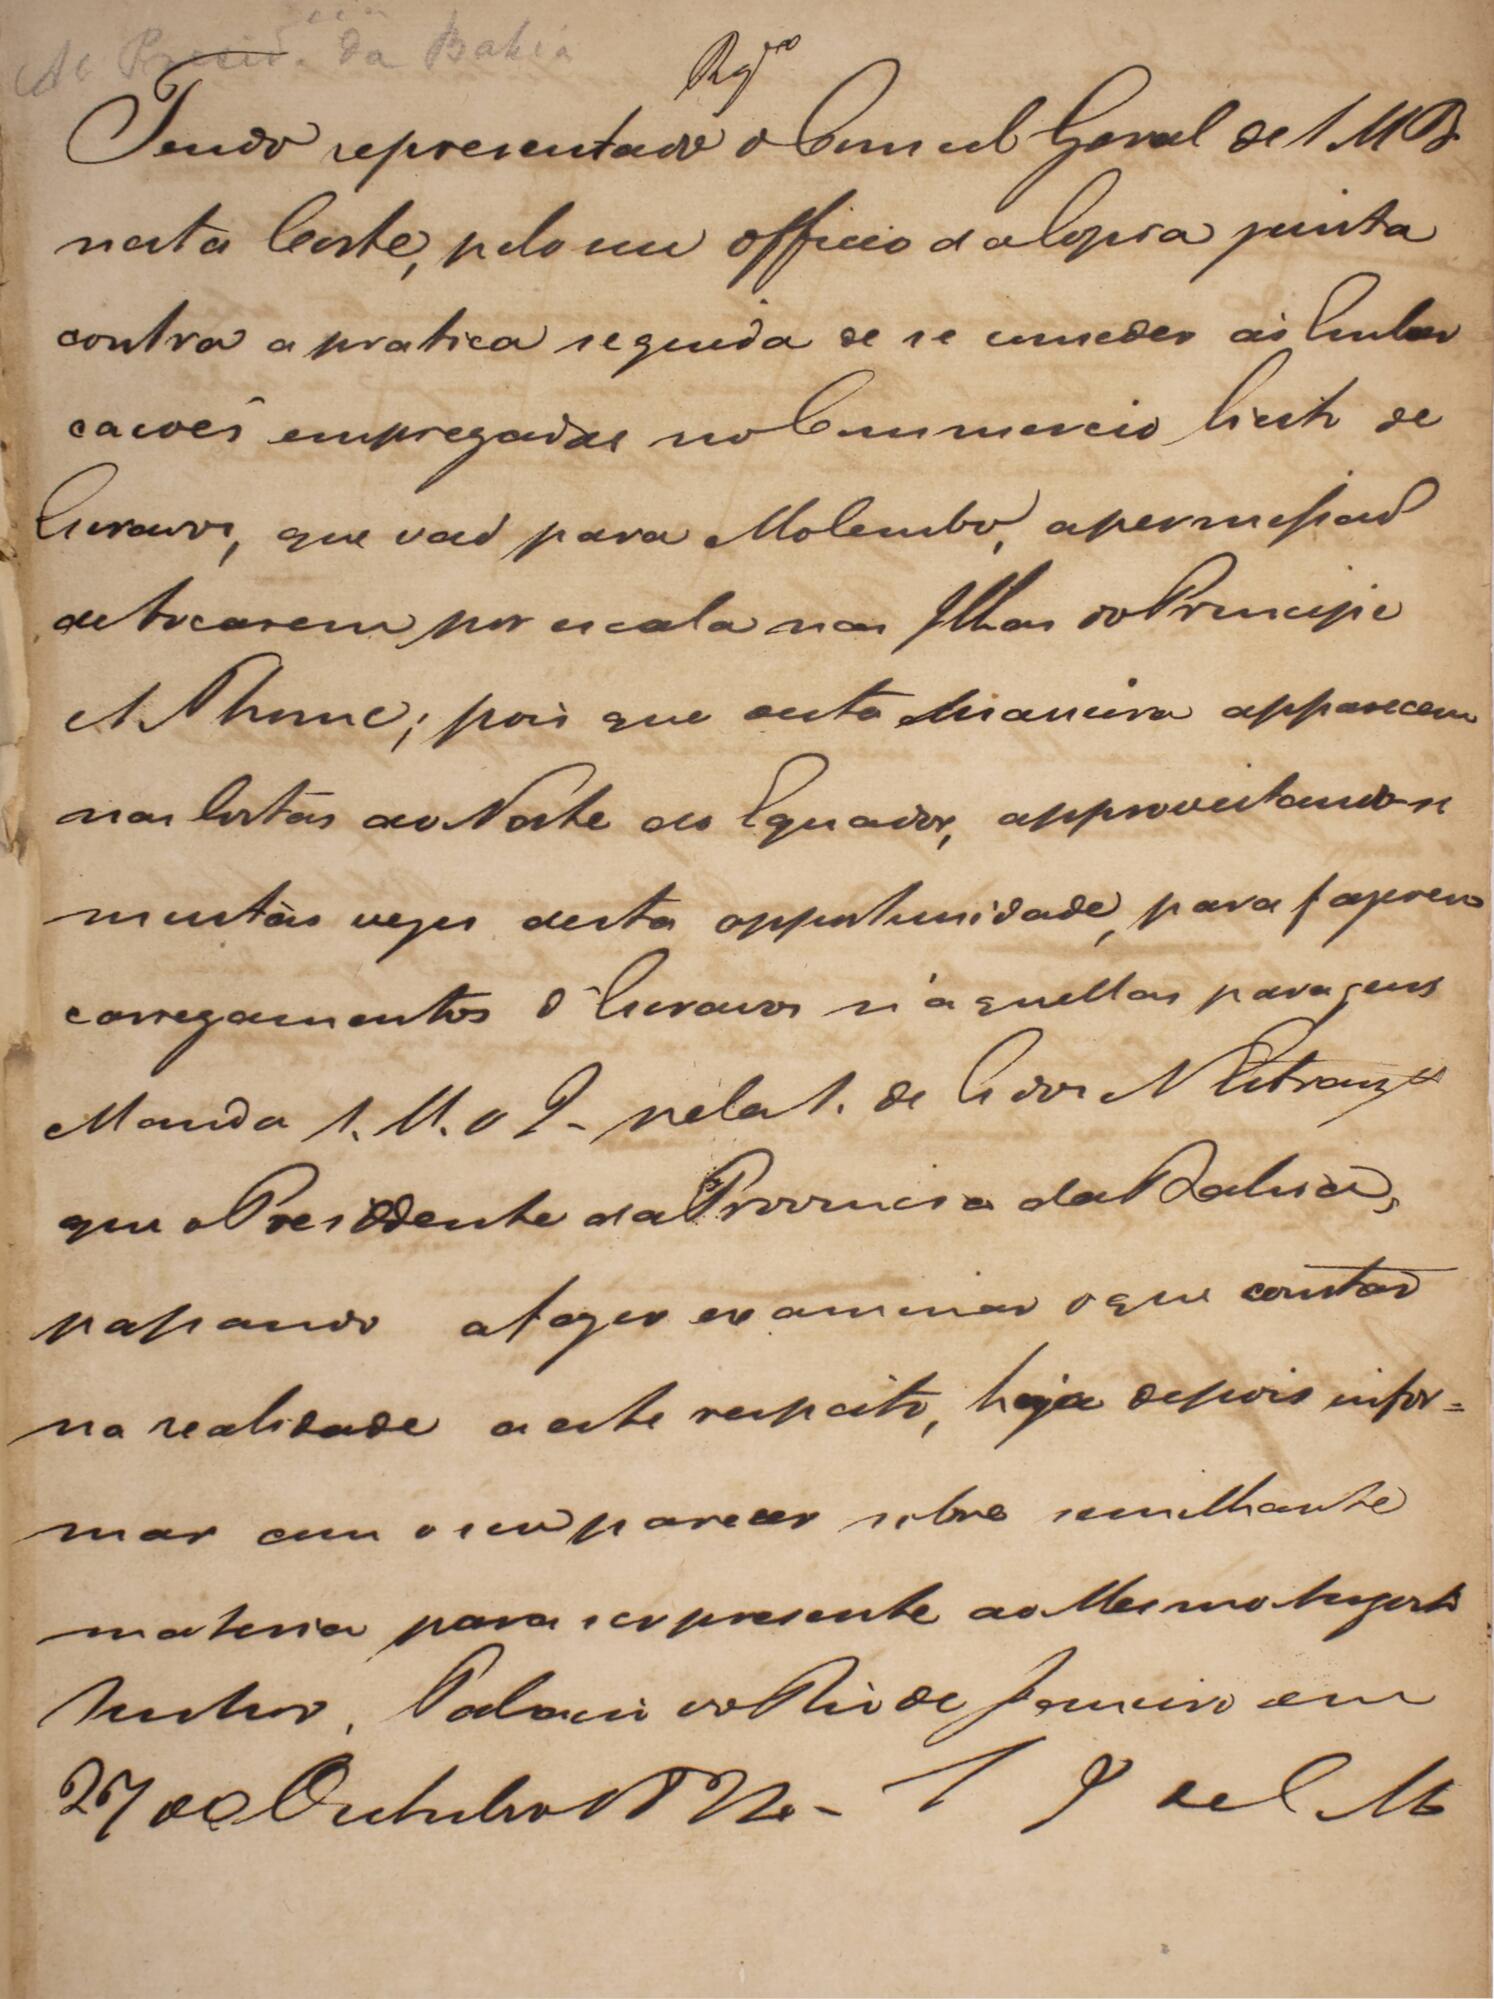 Ao Presid.e da Bahia
Rg.do
Tendo representado o Consul Geral de S M B
nesta Corte, pelo seu officio da copia junta
contra a pratica seguida de se conceder ás Embar
cacoês empregadas no Commercio licito de
Escravos, que vaõ para Molembo, a permissaõ
de tocarem por escala nas Ilhas do Principe
e S Thome; pois que desta Maneira apparecem
nas Costas ao Norte do Equador, approveitando-se
muitas vezes desta opportunidade, para fazerem
carregamentos d'Escravos n'aquellas paragens
Manda S. M. o I. pela S. de E dos N Estrang.os
que o Presidente da Provincia da Bahia,
passando a fazer examinar o que constar
na realidade a este respeito, haja depois infor=
mar com o seu parecer sobre semilhante
materia para ser presente ao Mesmo Augusto
Senhor. Palacio do Rio de Janeiro em
27 de Outubro de